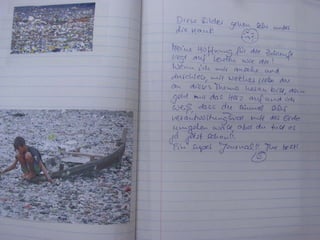 Diese Bilder gehen sehr unter
die Haut!
Meine Hoffnung für die Zukunft
liegt auf Leuten wie dir!
Wenn ich mir ansehe und
durchlese, mit welcher Liebe du
an dieses Thema heran bist, dann
geht mir das Herz auf und ich
weiß, dass du einmal sehr
verantwortungsvoll mit der Erde
umgehen wirst, aber du tust es
ja jetzt schon!
Ein super Journal!!